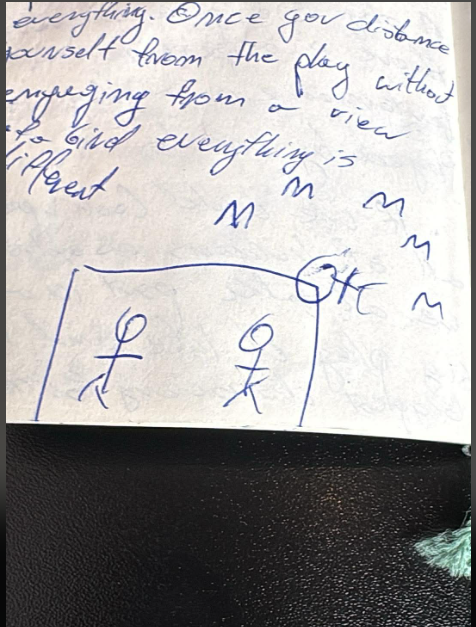 everything. Once you distance
yourself from the play without
engaging from a view
find everything is
different
M M M
M
M